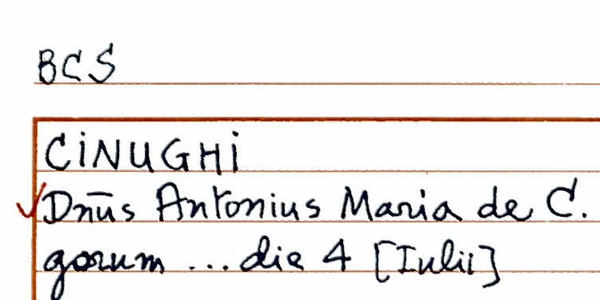 BCS
CINUGHI
Dnūs Antonius Maria de C.
gorum ... die 4 [Iulii]